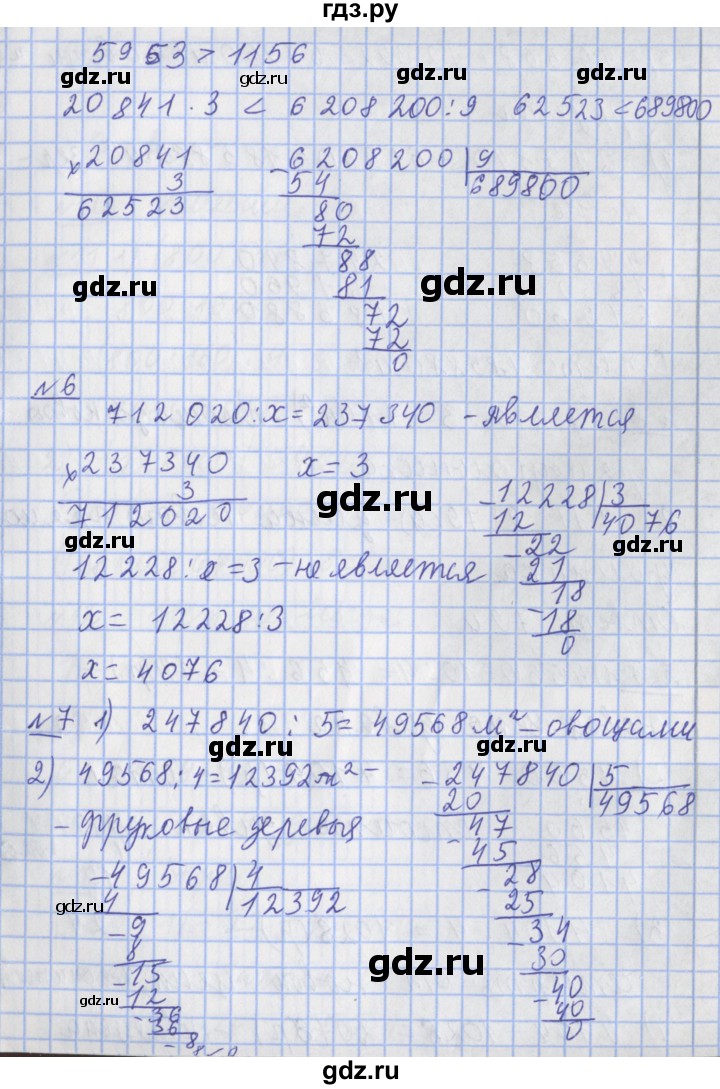 гдз.ру
5953 > 1156
gdz.ru gdz.ru gdz.ru
20841 · 3 < 6208200 : 9 62523 < 689800
× 20841
3
62523
- 6208200 | 9
54 689800
80
72
88
81
72
72
0
gdz.ru gdz.ru
№6
712020 : x = 237340 - является
× 237340 x = 3
3
712020
gdz.ru
gdz.ru
- 12228 | 3
12 4076
- 22
21
18
- 18
0
gdz.ru
12228 : x = 3 - не является
x = 12228 : 3
x = 4076
№7 1) 247840 : 5 = 49568 м² - овощами
gdz.ru gdz.ru
2) 49568 : 4 = 12392 м² -
- фруковые деревья
- 247840 | 5
20 49568
- 47
45
- 28
25
- 34
30
- 40
40
0
- 49568 | 4
4 12392
- 9
8
- 15
12
- 36
36
- 8
8
0
gdz.ru gdz.ru
gdz.ru
gdz.ru
gdz.ru